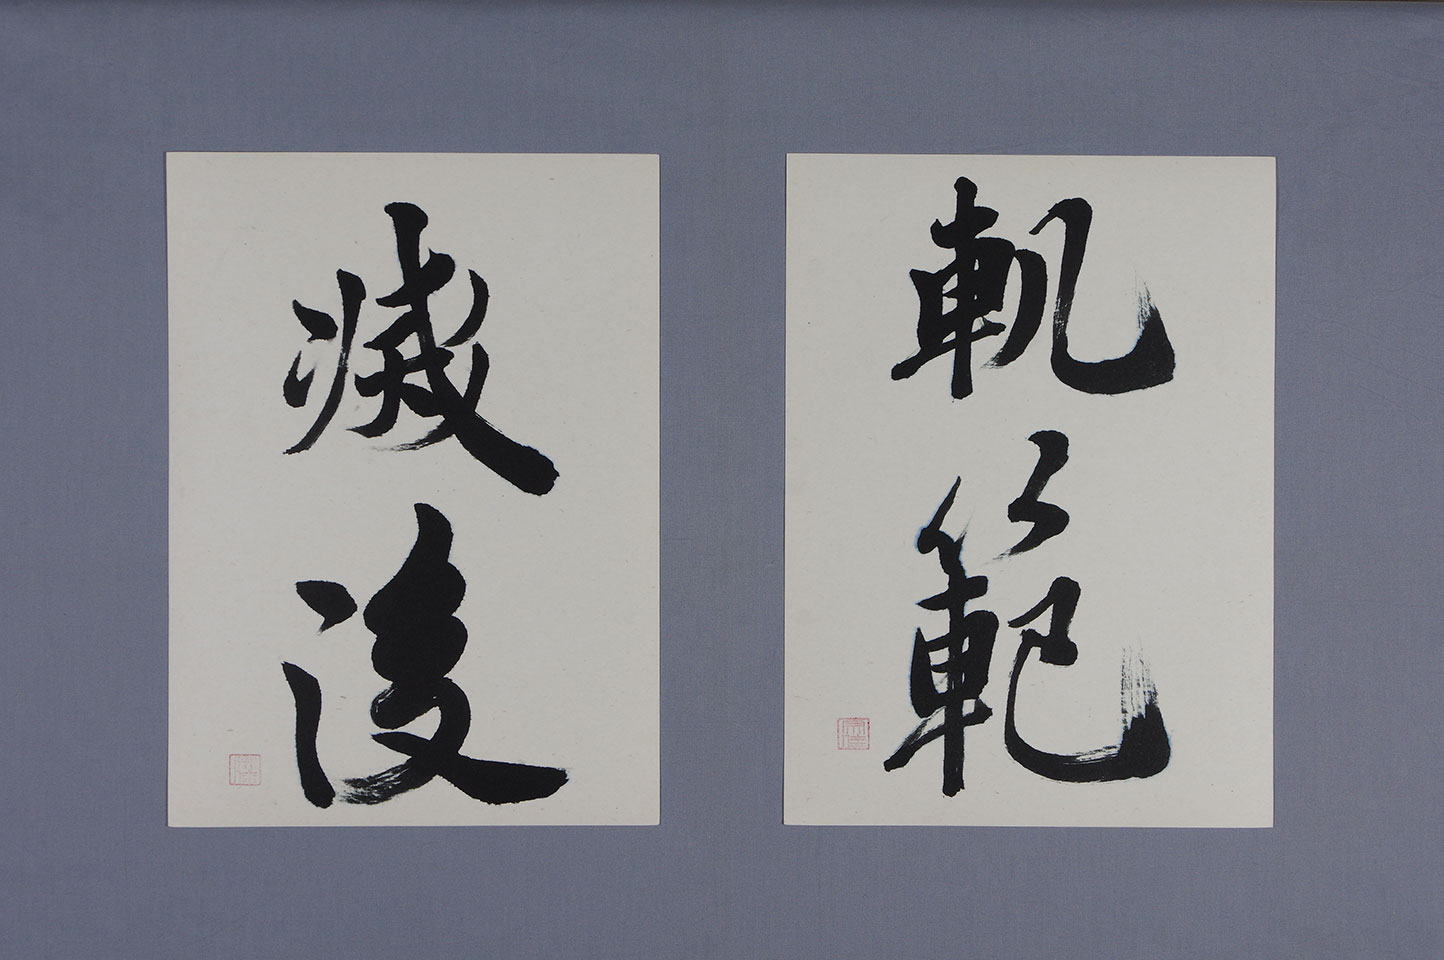 軌範
滅後